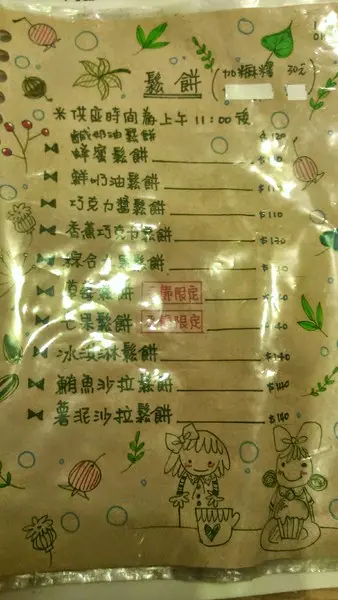 鬆餅 (加麻糬 30元)
※供應時間為上午11:00後
鹹奶油鬆餅 $120
蜂蜜鬆餅
鮮奶油鬆餅
巧克力醬鬆餅 $110
香蕉巧克力鬆餅 $120
綜合水果鬆餅
草莓鬆餅 季節限定
芒果鬆餅 季節限定
冰淇淋鬆餅 $140
鮪魚沙拉鬆餅 $140
薯泥沙拉鬆餅 $140